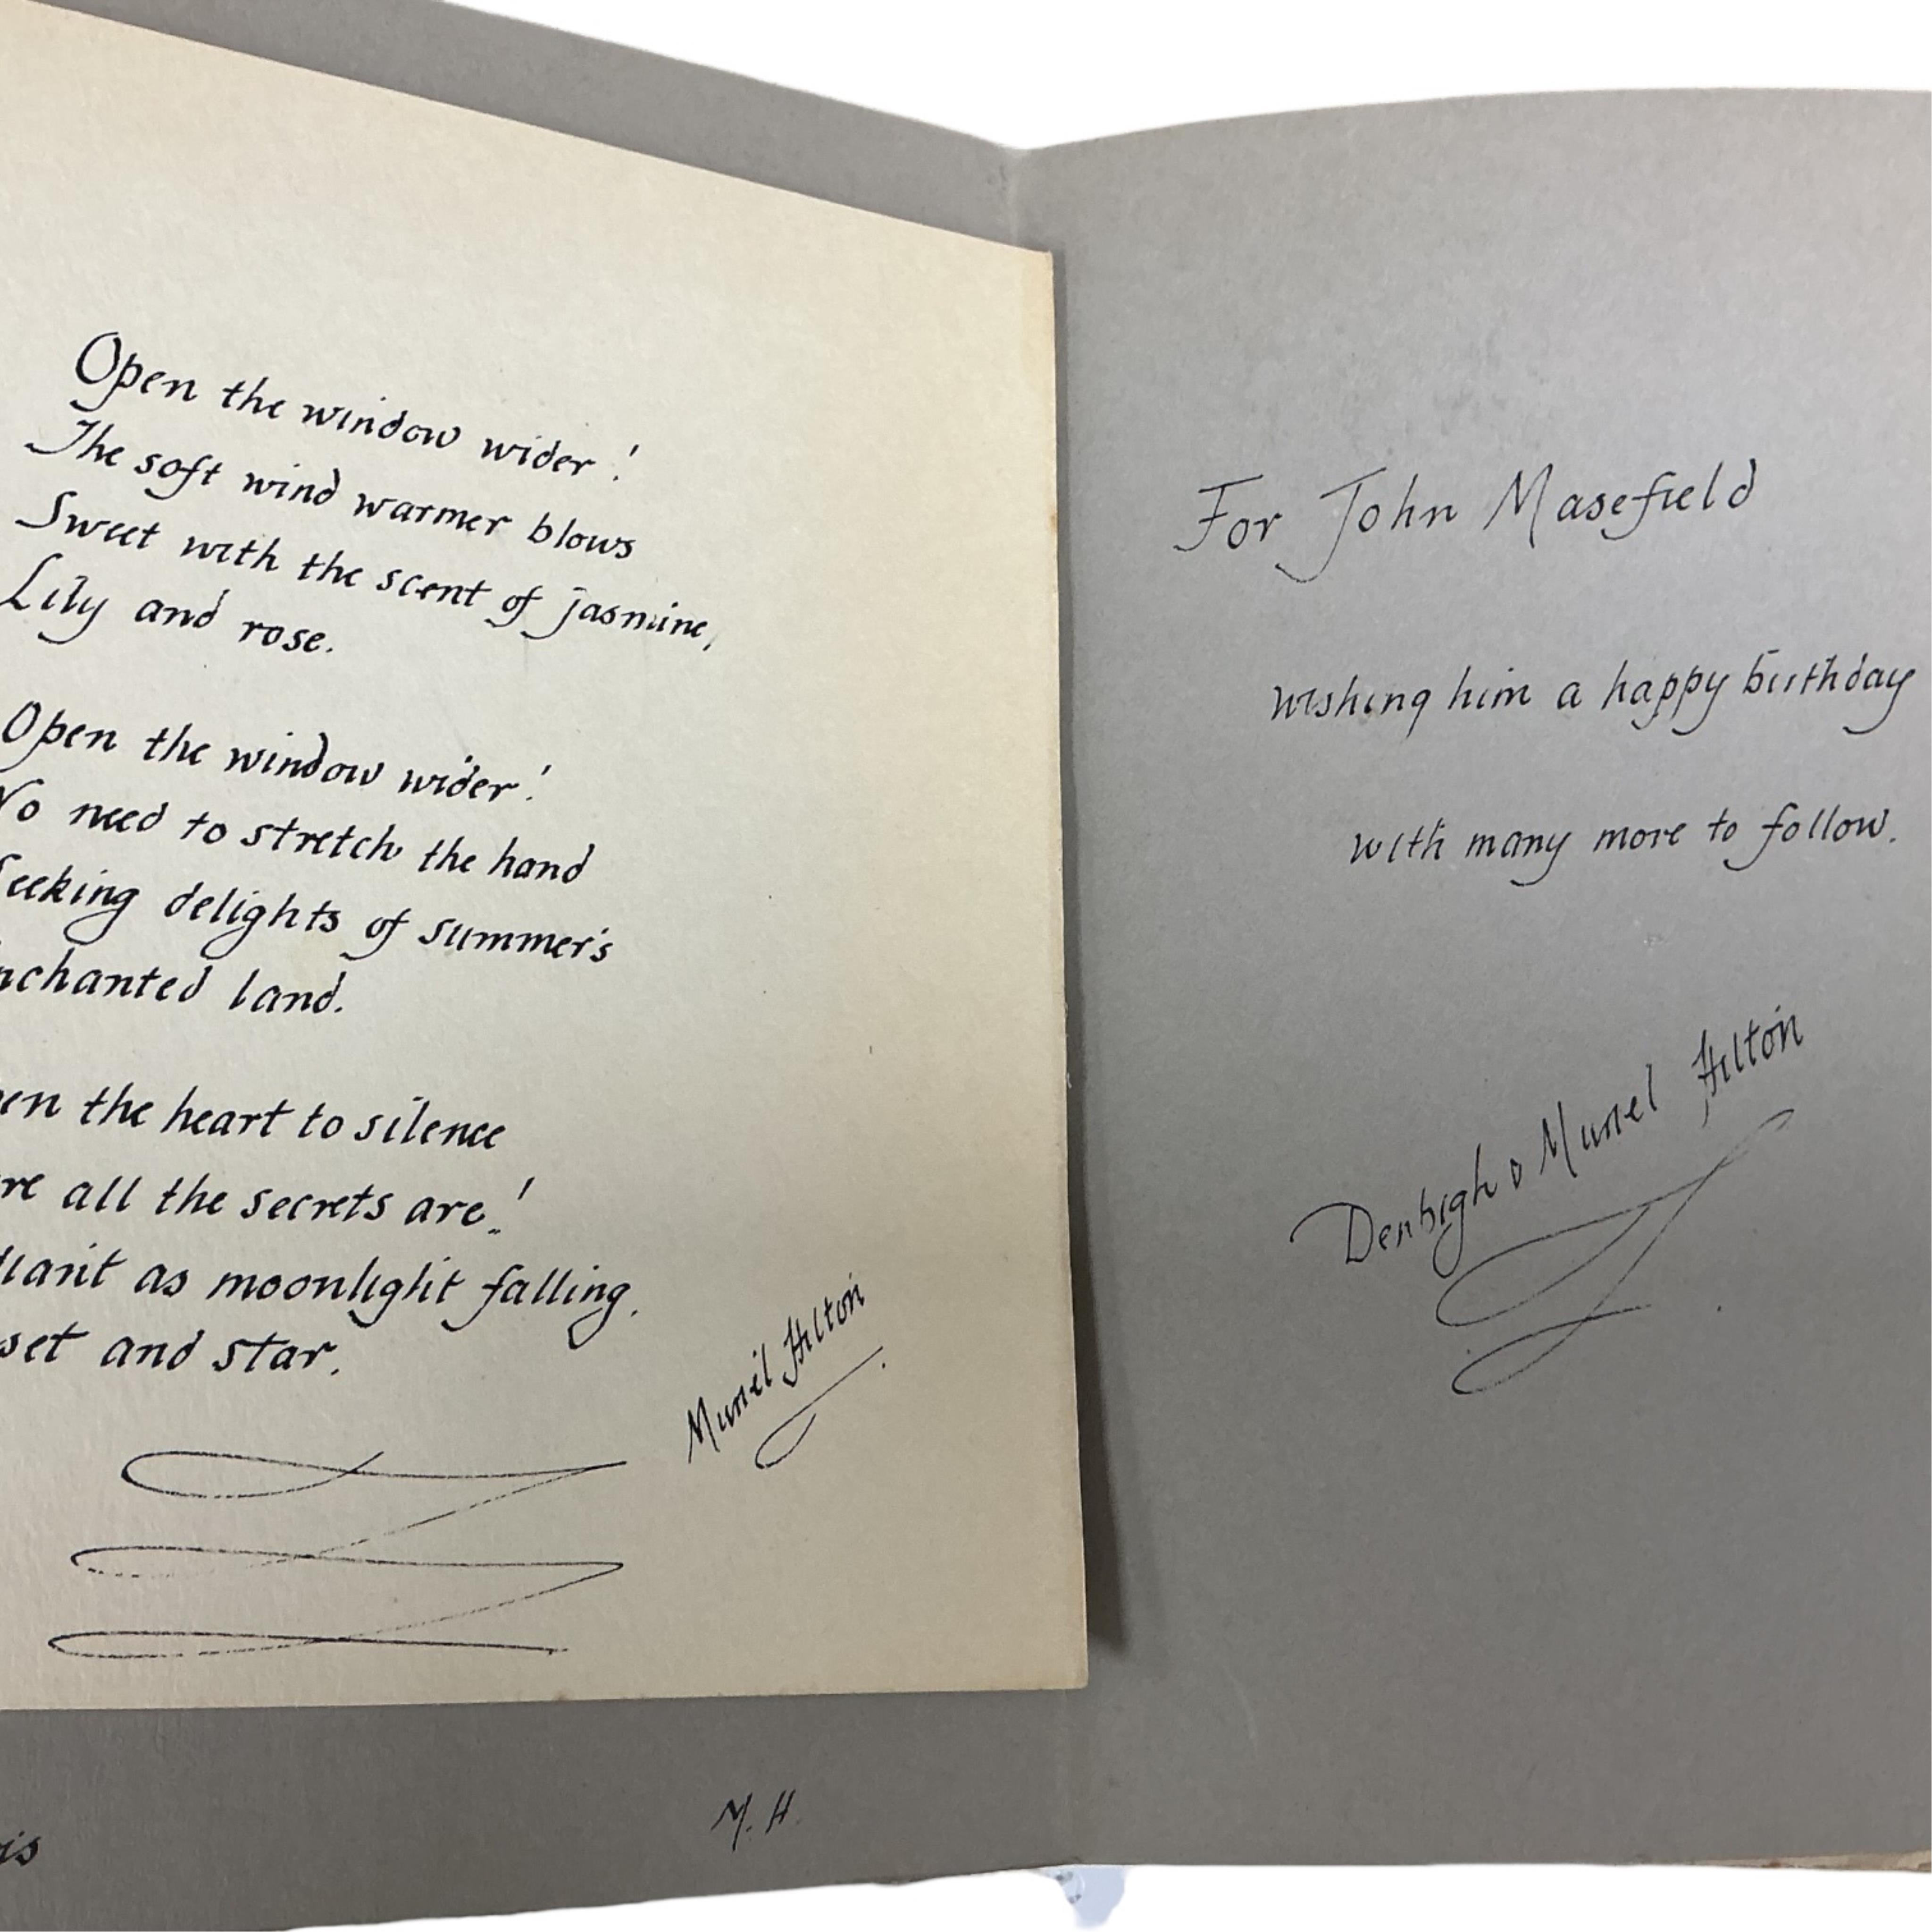 Open the window wider!
The soft wind warmer blows
Sweet with the scent of jasmine,
Lily and rose.
Open the window wider!
No need to stretch the hand
Seeking delights of summer's
nchanted land.
en the heart to silence
re all the secrets are!
iant as moonlight falling.
set and star.
Muriel Hilton
is
M. H.
For John Masefield
wishing him a happy birthday
with many more to follow.
Denbigh & Muriel Hilton